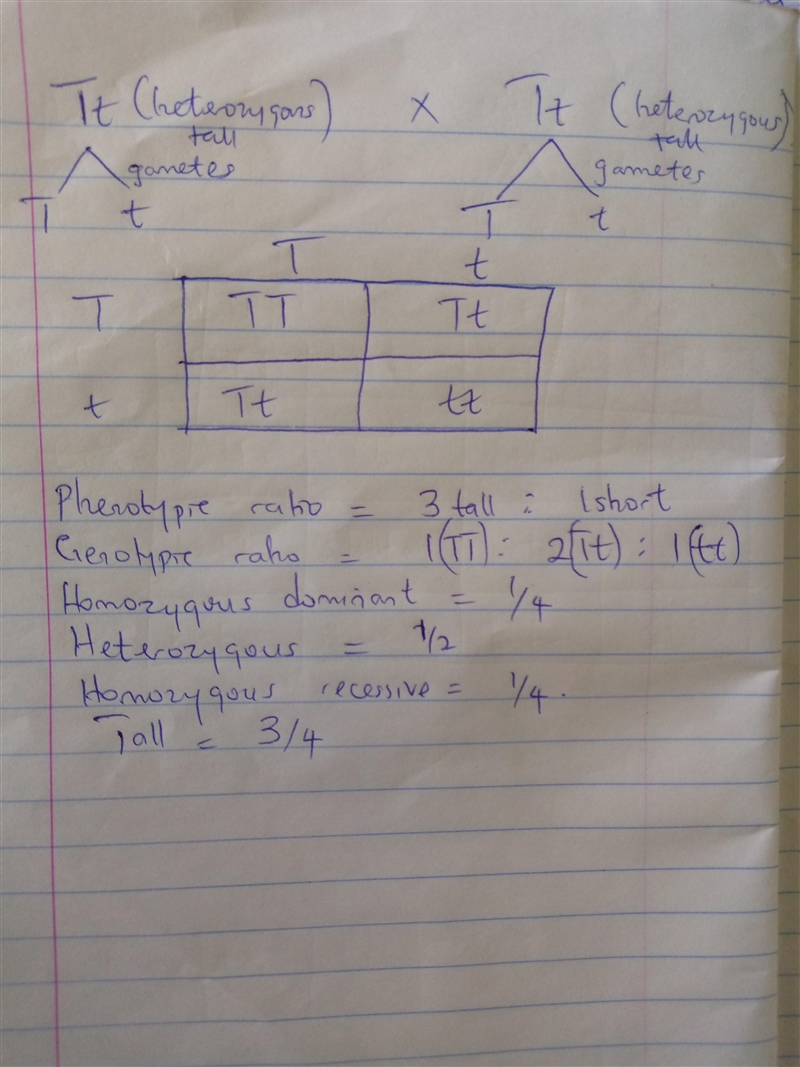 Tt (heterozygous) x Tt (heterozygous)
tall tall
gametes gametes
T t T t
T t
T TT Tt
t Tt tt
Phenotypic ratio = 3 tall : 1 short
Genotypic ratio = 1(TT) : 2(Tt) : 1(tt)
Homozygous dominant = 1/4
Heterozygous = 1/2
Homozygous recessive = 1/4.
Tall = 3/4